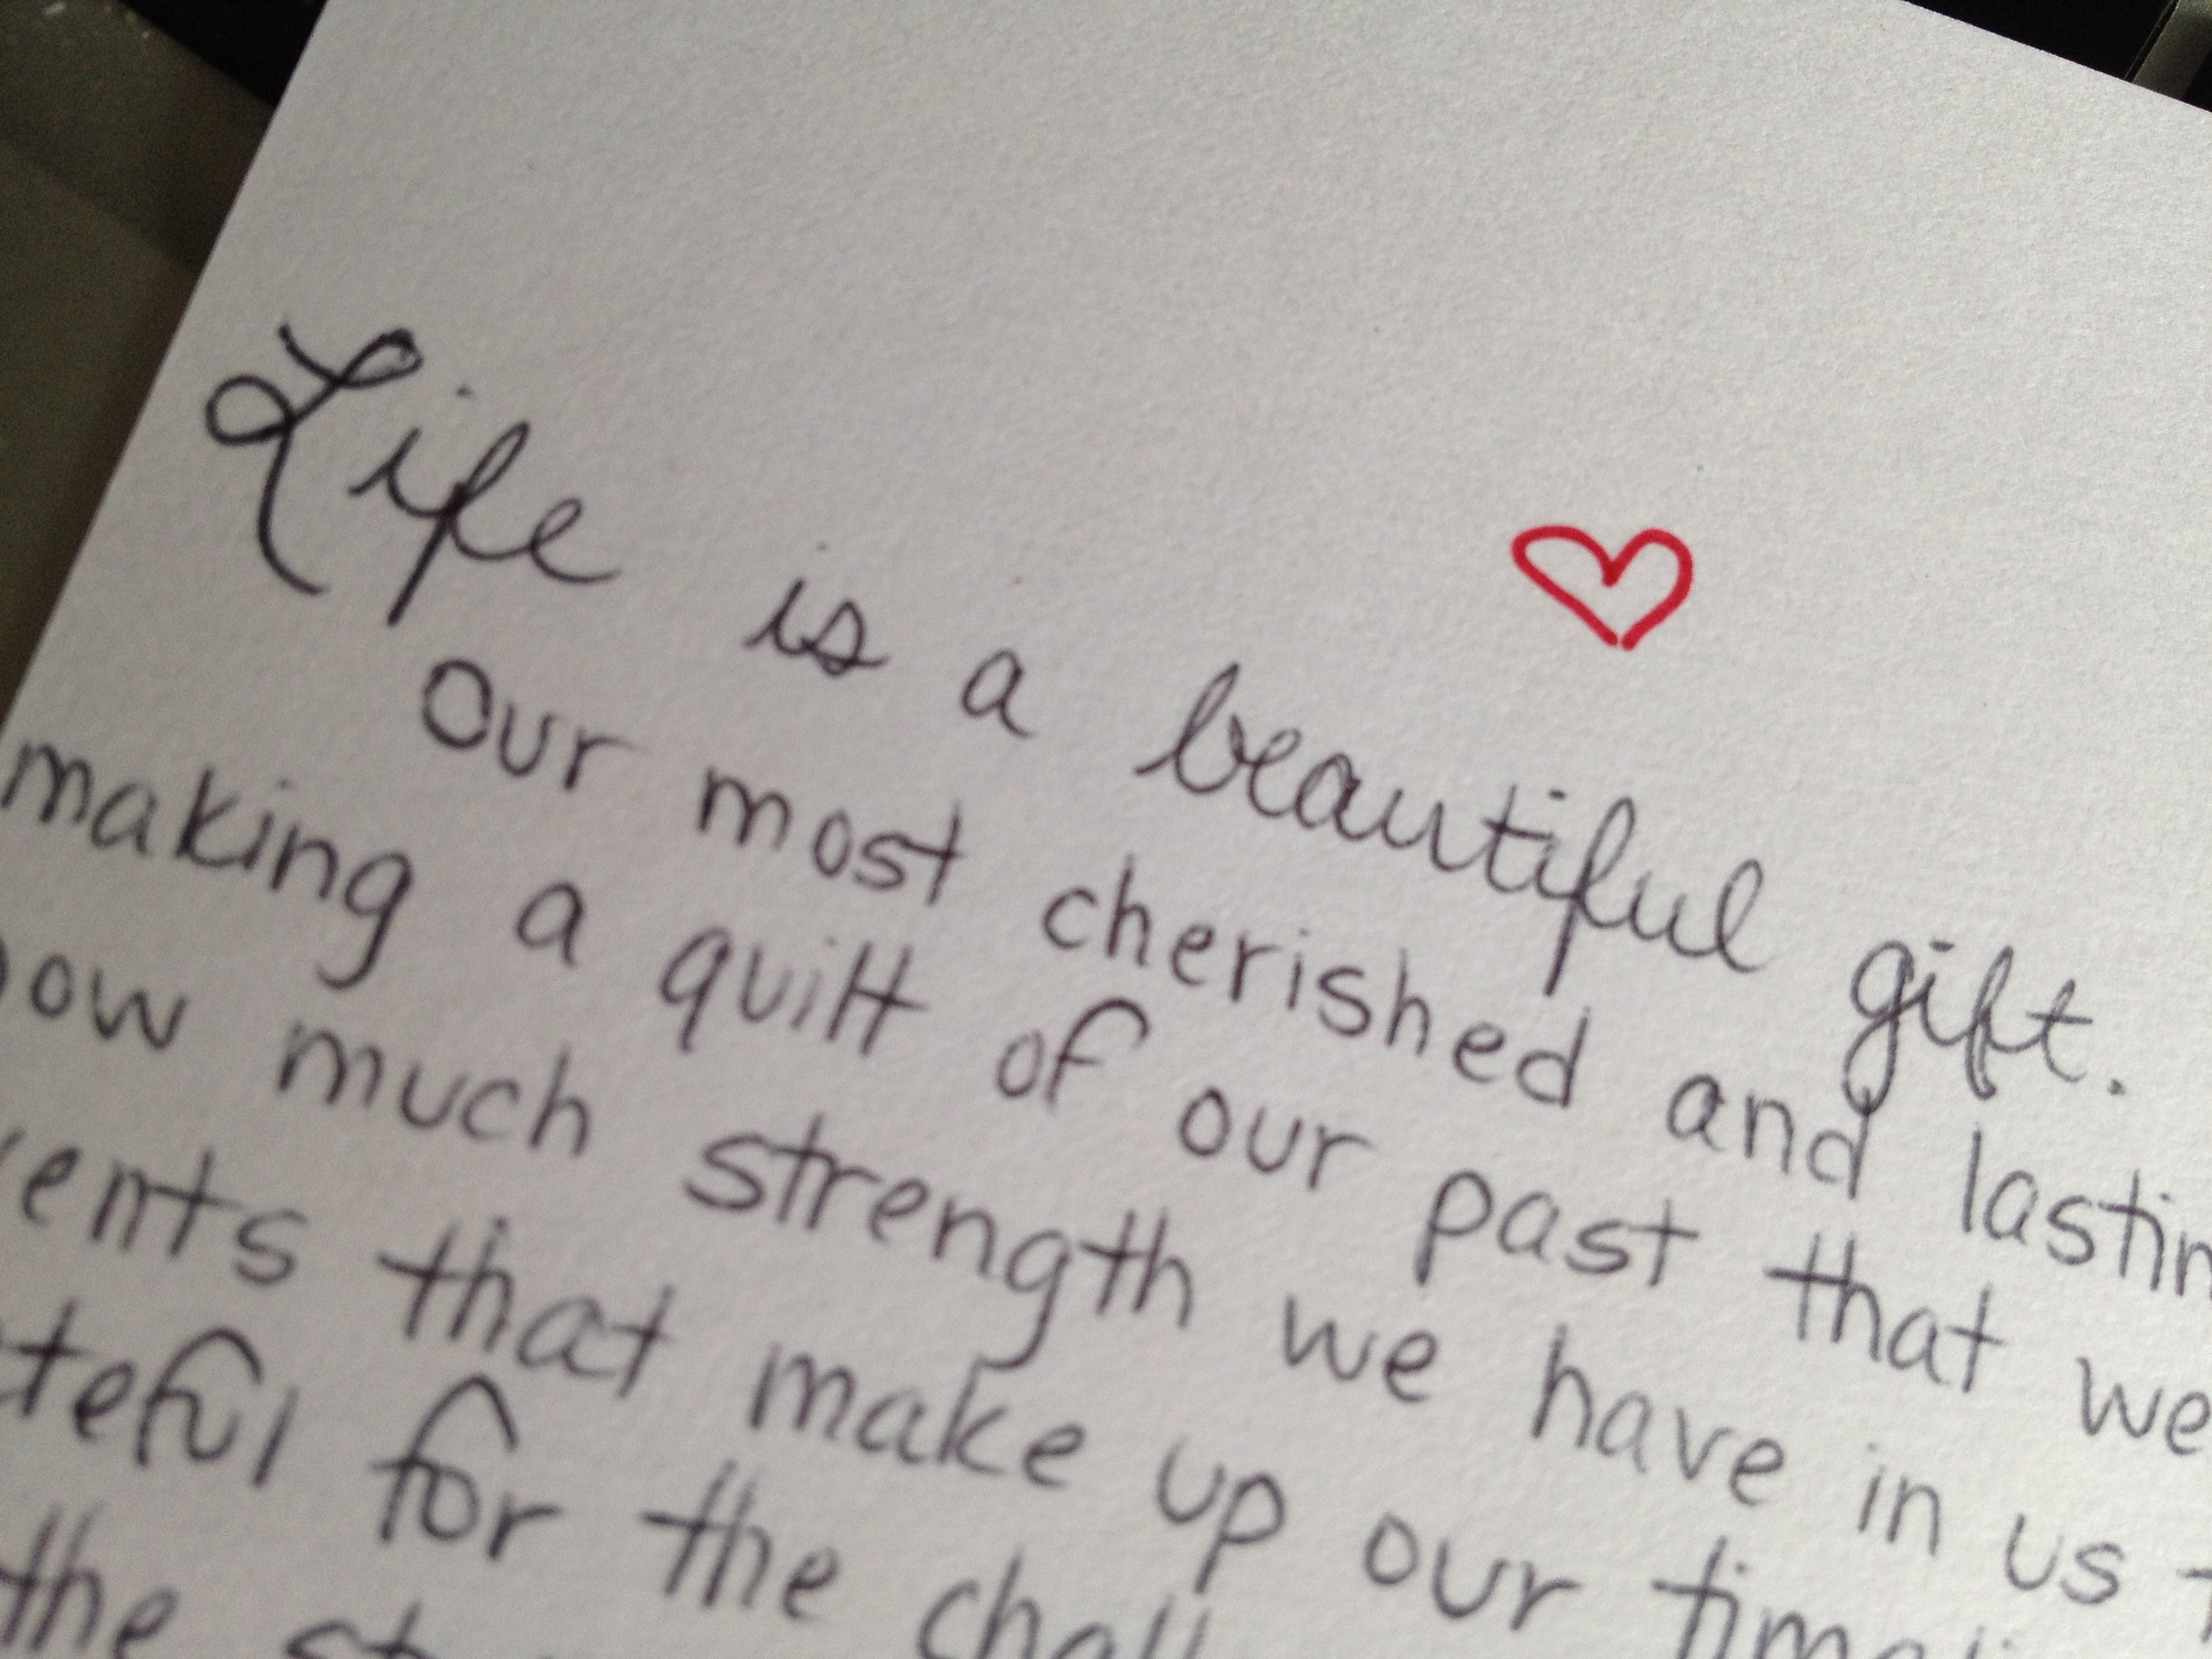 Life is a beautiful gift.
Our most cherished and lastin
making a quilt of our past that we
how much strength we have in us
ents that make up our timeli
teful for the chall
the st